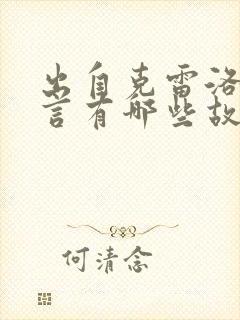 出自克雷洛
言有哪些故
何清念